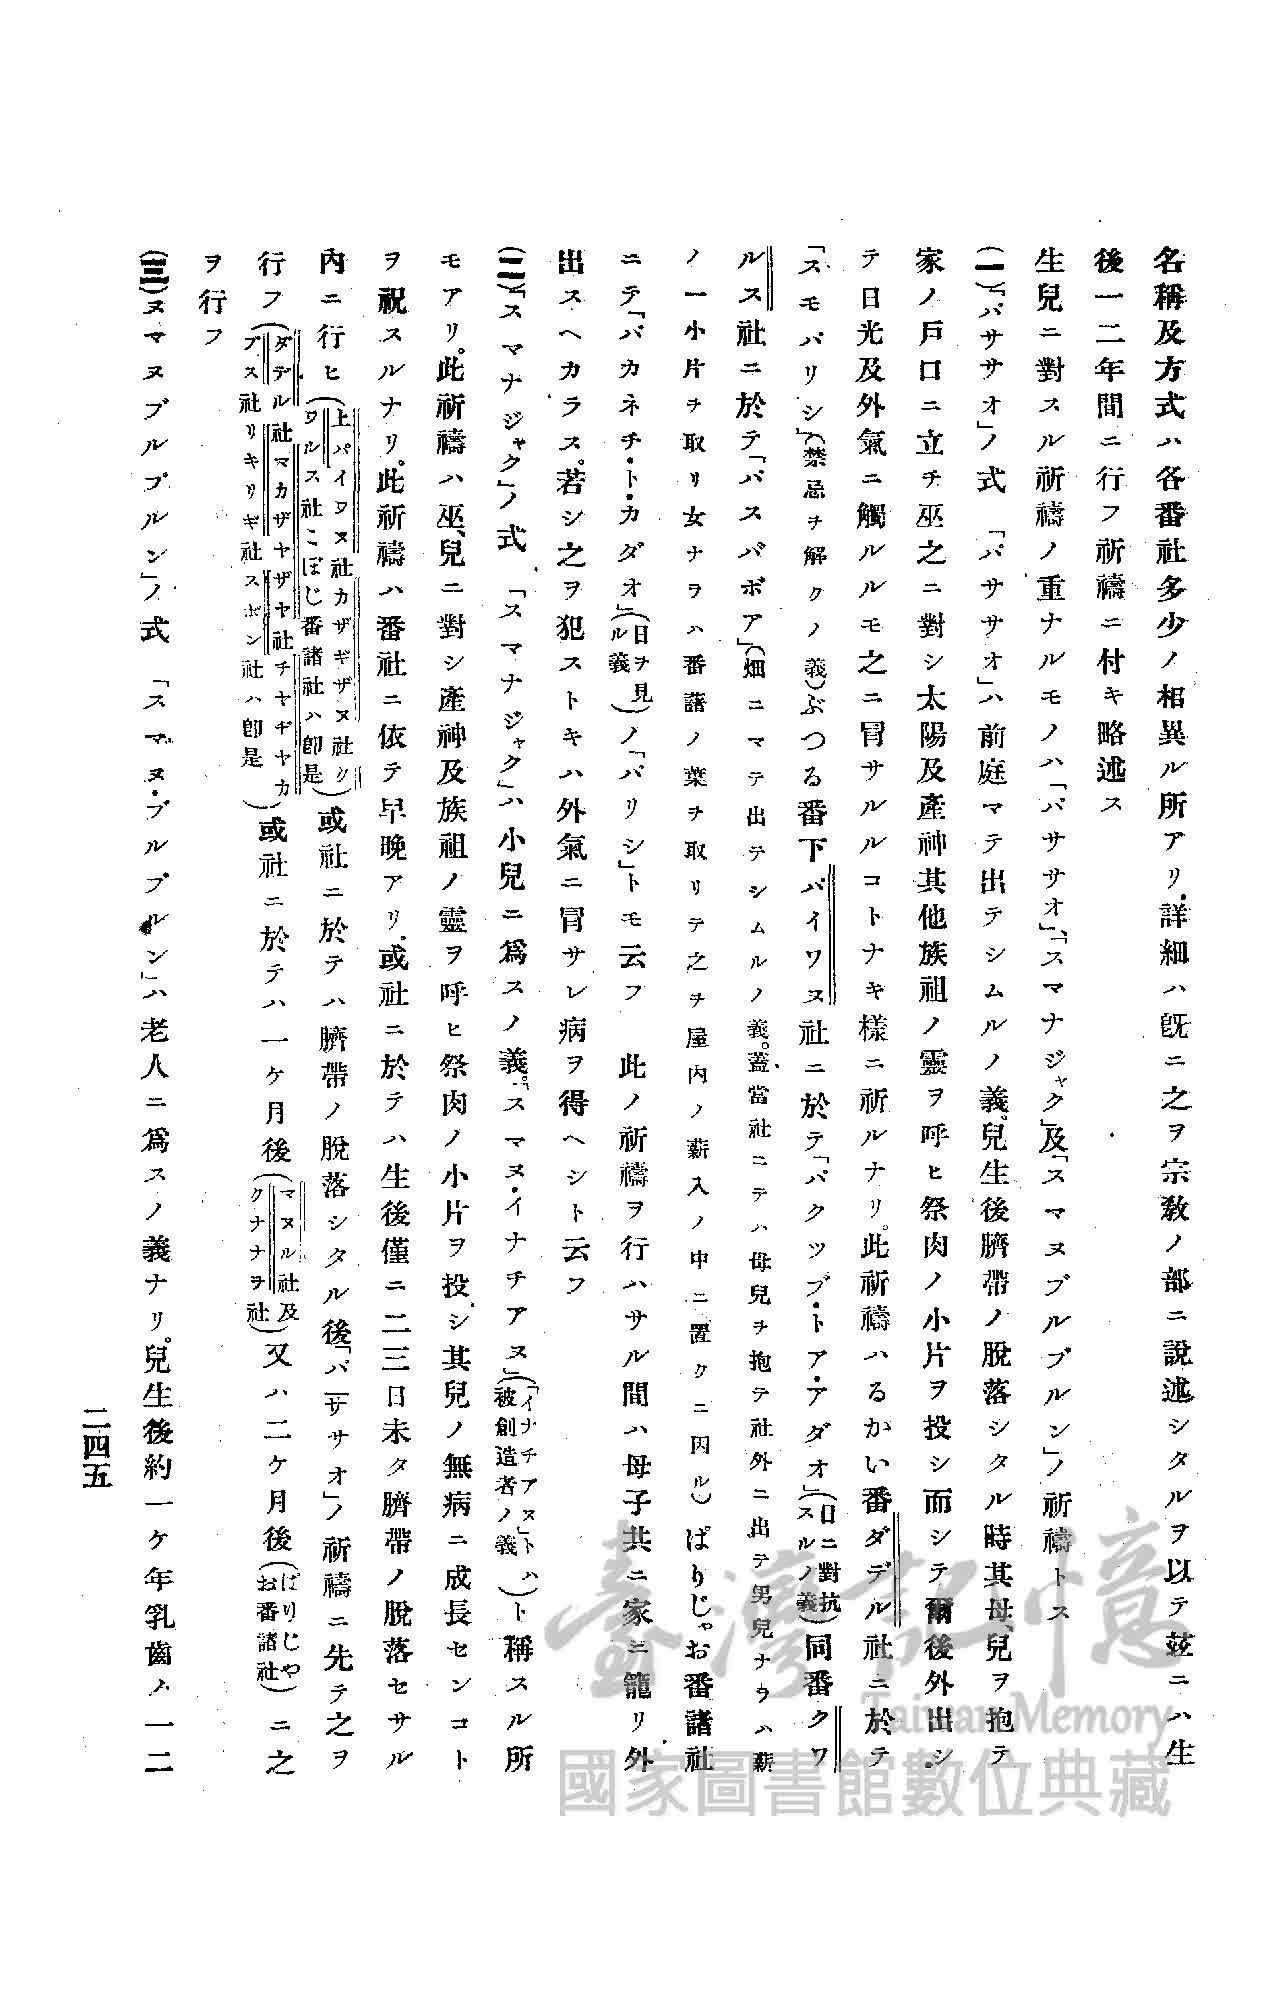 名稱及方式ハ各番社多少ノ相異ル所アリ、詳細ハ旣ニ之ヲ宗敎ノ部ニ說述シタルヲ以テ茲ニハ生
後一二年間ニ行フ祈禱ニ付キ略述ス
生兒ニ對スル祈禱ノ重ナルモノハ「パササオ」、「スマナジャク」及「スマヌブルブルン」ノ祈禱トス
(一)「パササオ」ノ式　「パササオ」ハ前庭マテ出テシムルノ義。兒生後臍帶ノ脫落シタル時其母、兒ヲ抱テ
家ノ戶口ニ立チ巫之ニ對シ太陽及產神其他族祖ノ靈ヲ呼ヒ祭肉ノ小片ヲ投シ而シテ爾後外出シ
テ日光及外氣ニ觸ルルモ之ニ冒サルルコトナキ樣ニ祈ルナリ。此祈禱ハるかい番ダデル社ニ於テ
「スモパリシ」(禁忌ヲ解クノ義)ぶつる番下パイワヌ社ニ於テ「パクツブ・トア・アダオ」(日ニ對抗スルノ義)同番クワ
ルス社ニ於テ「パスパボア」(畑ニマテ出テシムルノ義。蓋當社ニテハ母兒ヲ抱テ社外ニ出テ男兒ナラハ薪
ノ一小片ヲ取リ女ナヲハ番藷ノ葉ヲ取リテ之ヲ屋內ノ薪入ノ中ニ置クニ因ル)ぱりじゃお番諸社
ニテ「パカネチ・ト・カダオ」(日ヲ見ル義)ノ「パリシ」トモ云フ　此ノ祈禱ヲ行ハサル間ハ母子共ニ家ニ籠リ外
出スヘカラス。若シ之ヲ犯ストキハ外氣ニ冒サレ病ヲ得ヘシト云フ
(二)「スマナジャク」ノ式　「スマナジャク」ハ小兒ニ爲スノ義。「スマヌ・イナチアヌ」(「イナチアヌ」トハ被創造者ノ義)ト稱スル所
モアリ。此祈禱ハ巫、兒ニ對シ產神及族祖ノ靈ヲ呼ヒ祭肉ノ小片ヲ投シ其兒ノ無病ニ成長センコト
ヲ祝スルナリ。此祈禱ハ番社ニ依テ早晚アリ、或社ニ於テハ生後僅ニ二三日未タ臍帶ノ脫落セサル
內ニ行ヒ(上パイワヌ社カザギザヌ社クワルス社こぼじ番諸社ハ卽是)或社ニ於テハ臍帶ノ脫落シタル後「パササオ」ノ祈禱ニ先テ之ヲ
行フ(ダデル社マカザヤザヤ社チヤヂヤカブス社リキリギ社スボン社ハ卽是)或社ニ於テハ一ヶ月後(マヌル社及クナナヲ社)又ハ二ヶ月後(ぱりじやお番諸社)ニ之
ヲ行フ
(三)ヌマヌブルブルン」ノ式　「スマヌ・ブルブルン」ハ老人ニ爲スノ義ナリ。兒生後約一ケ年乳齒ノ一二
二四五
臺灣記憶
Taiwan Memory
國家圖書館數位典藏